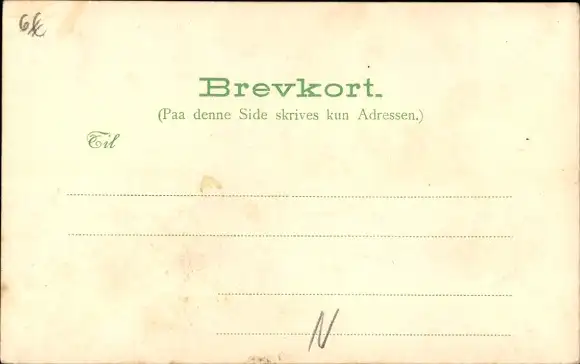 Brevkort.
(Paa denne Side skrives kun Adressen.)
Til
N